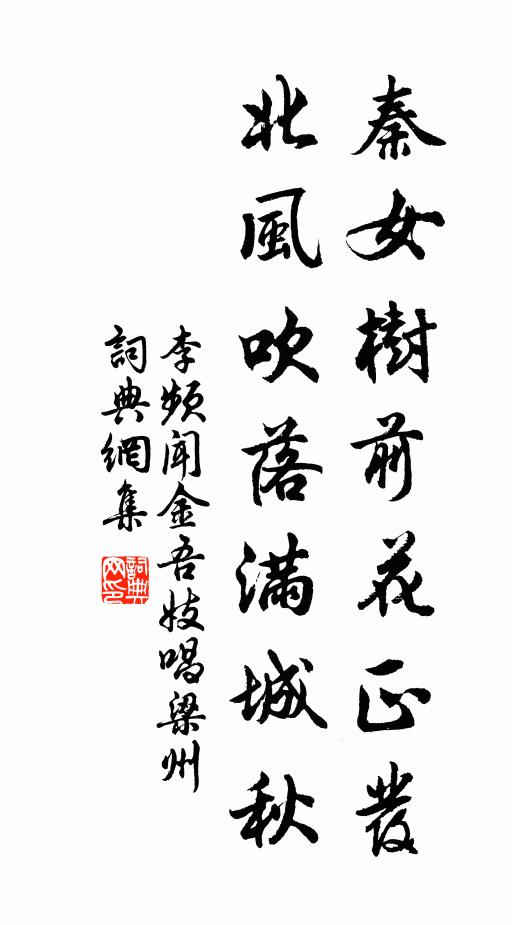 秦女樹前花正發
北風吹落滿城秋
李頻聞金吾妓唱梁州
詞典網集
詞典
网印